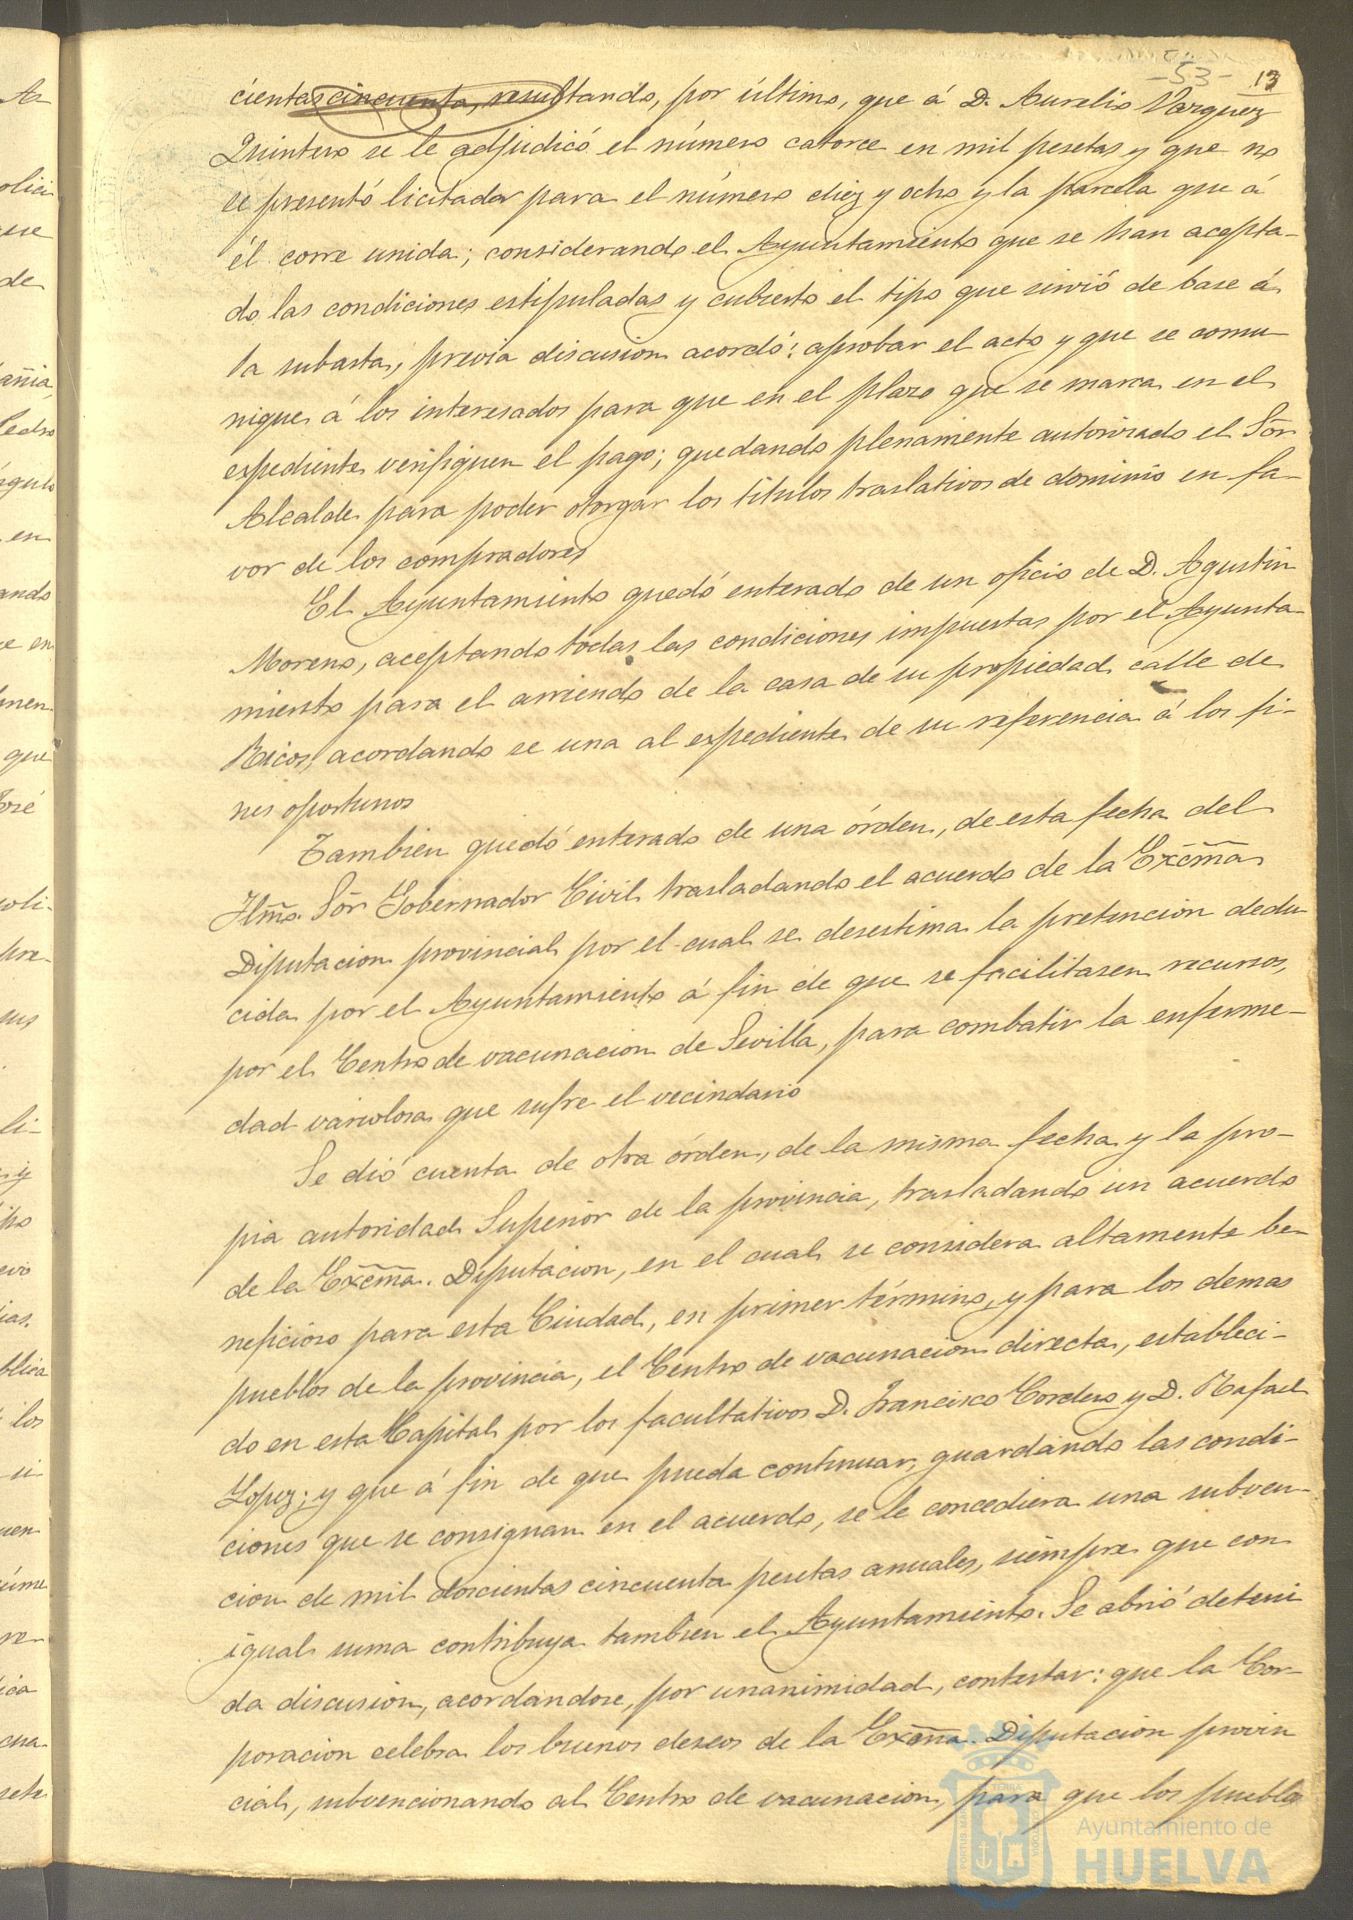 -53- 13
cientas cincuenta, resultando, por último, que á D. Aurelio Vazquez
Quintero se le adjudicó el número catorce en mil pesetas y que no
se presentó licitador para el número diez y ocho y la parcela que á
él corre unida; considerando el Ayuntamiento que se han acepta-
do las condiciones estipuladas y cubierto el tipo que sirvió de base á
la subasta, previa discusion acordó: aprobar el acto y que se comu-
nique á los interesados para que en el plazo que se marca en el
expediente verifiquen el pago; quedando plenamente autorizado el Sõr
Alcalde para poder otorgar los titulos traslativos de dominio en fa-
vor de los compradores
El Ayuntamiento quedó enterado de un oficio de D. Agustin
Moreno, aceptando todas las condiciones impuestas por el Ayunta-
miento para el arriendo de la casa de su propiedad calle de
Ricos, acordando se una al expediente de su referencia á los fi-
nes oportunos
Tambien quedó enterado de una órden, de esta fecha del
Ilm̃o. Sõr Gobernador Civil trasladando el acuerdo de la Exc̃m̃a
Diputacion provincial por el cual se desestima la pretencion dedu
cida por el Ayuntamiento á fin de que se facilitasen recursos,
por el Centro de vacunacion de Sevilla, para combatir la enferme-
dad variolosa que sufre el vecindario
Se dió cuenta de otra órden, de la misma fecha y la pro-
pia autoridad Superior de la provincia, trasladando un acuerdo
de la Exc̃m̃a. Diputacion, en el cual se considera altamente be-
neficioso para esta Ciudad, en primer término, y para los demas
pueblos de la provincia, el Centro de vacunacion directa, estableci-
do en esta Capital por los facultativos D. Francisco Cordero y D. Rafael
Lopez; y que á fin de que pueda continuar, guardando las condi-
ciones que se consignan en el acuerdo, se le concediera una subven-
cion de mil doscientas cincuenta pesetas anuales, siempre que con
igual suma contribuya tambien el Ayuntamiento. Se abrió deteni
da discusion, acordándose, por unanimidad, contestar: que la Cor-
poracion celebra los buenos deseos de la Exc̃m̃a. Diputacion provin
cial, subvencionando al Centro de vacunacion, para que los pueblo
Ayuntamiento de
HUELVA